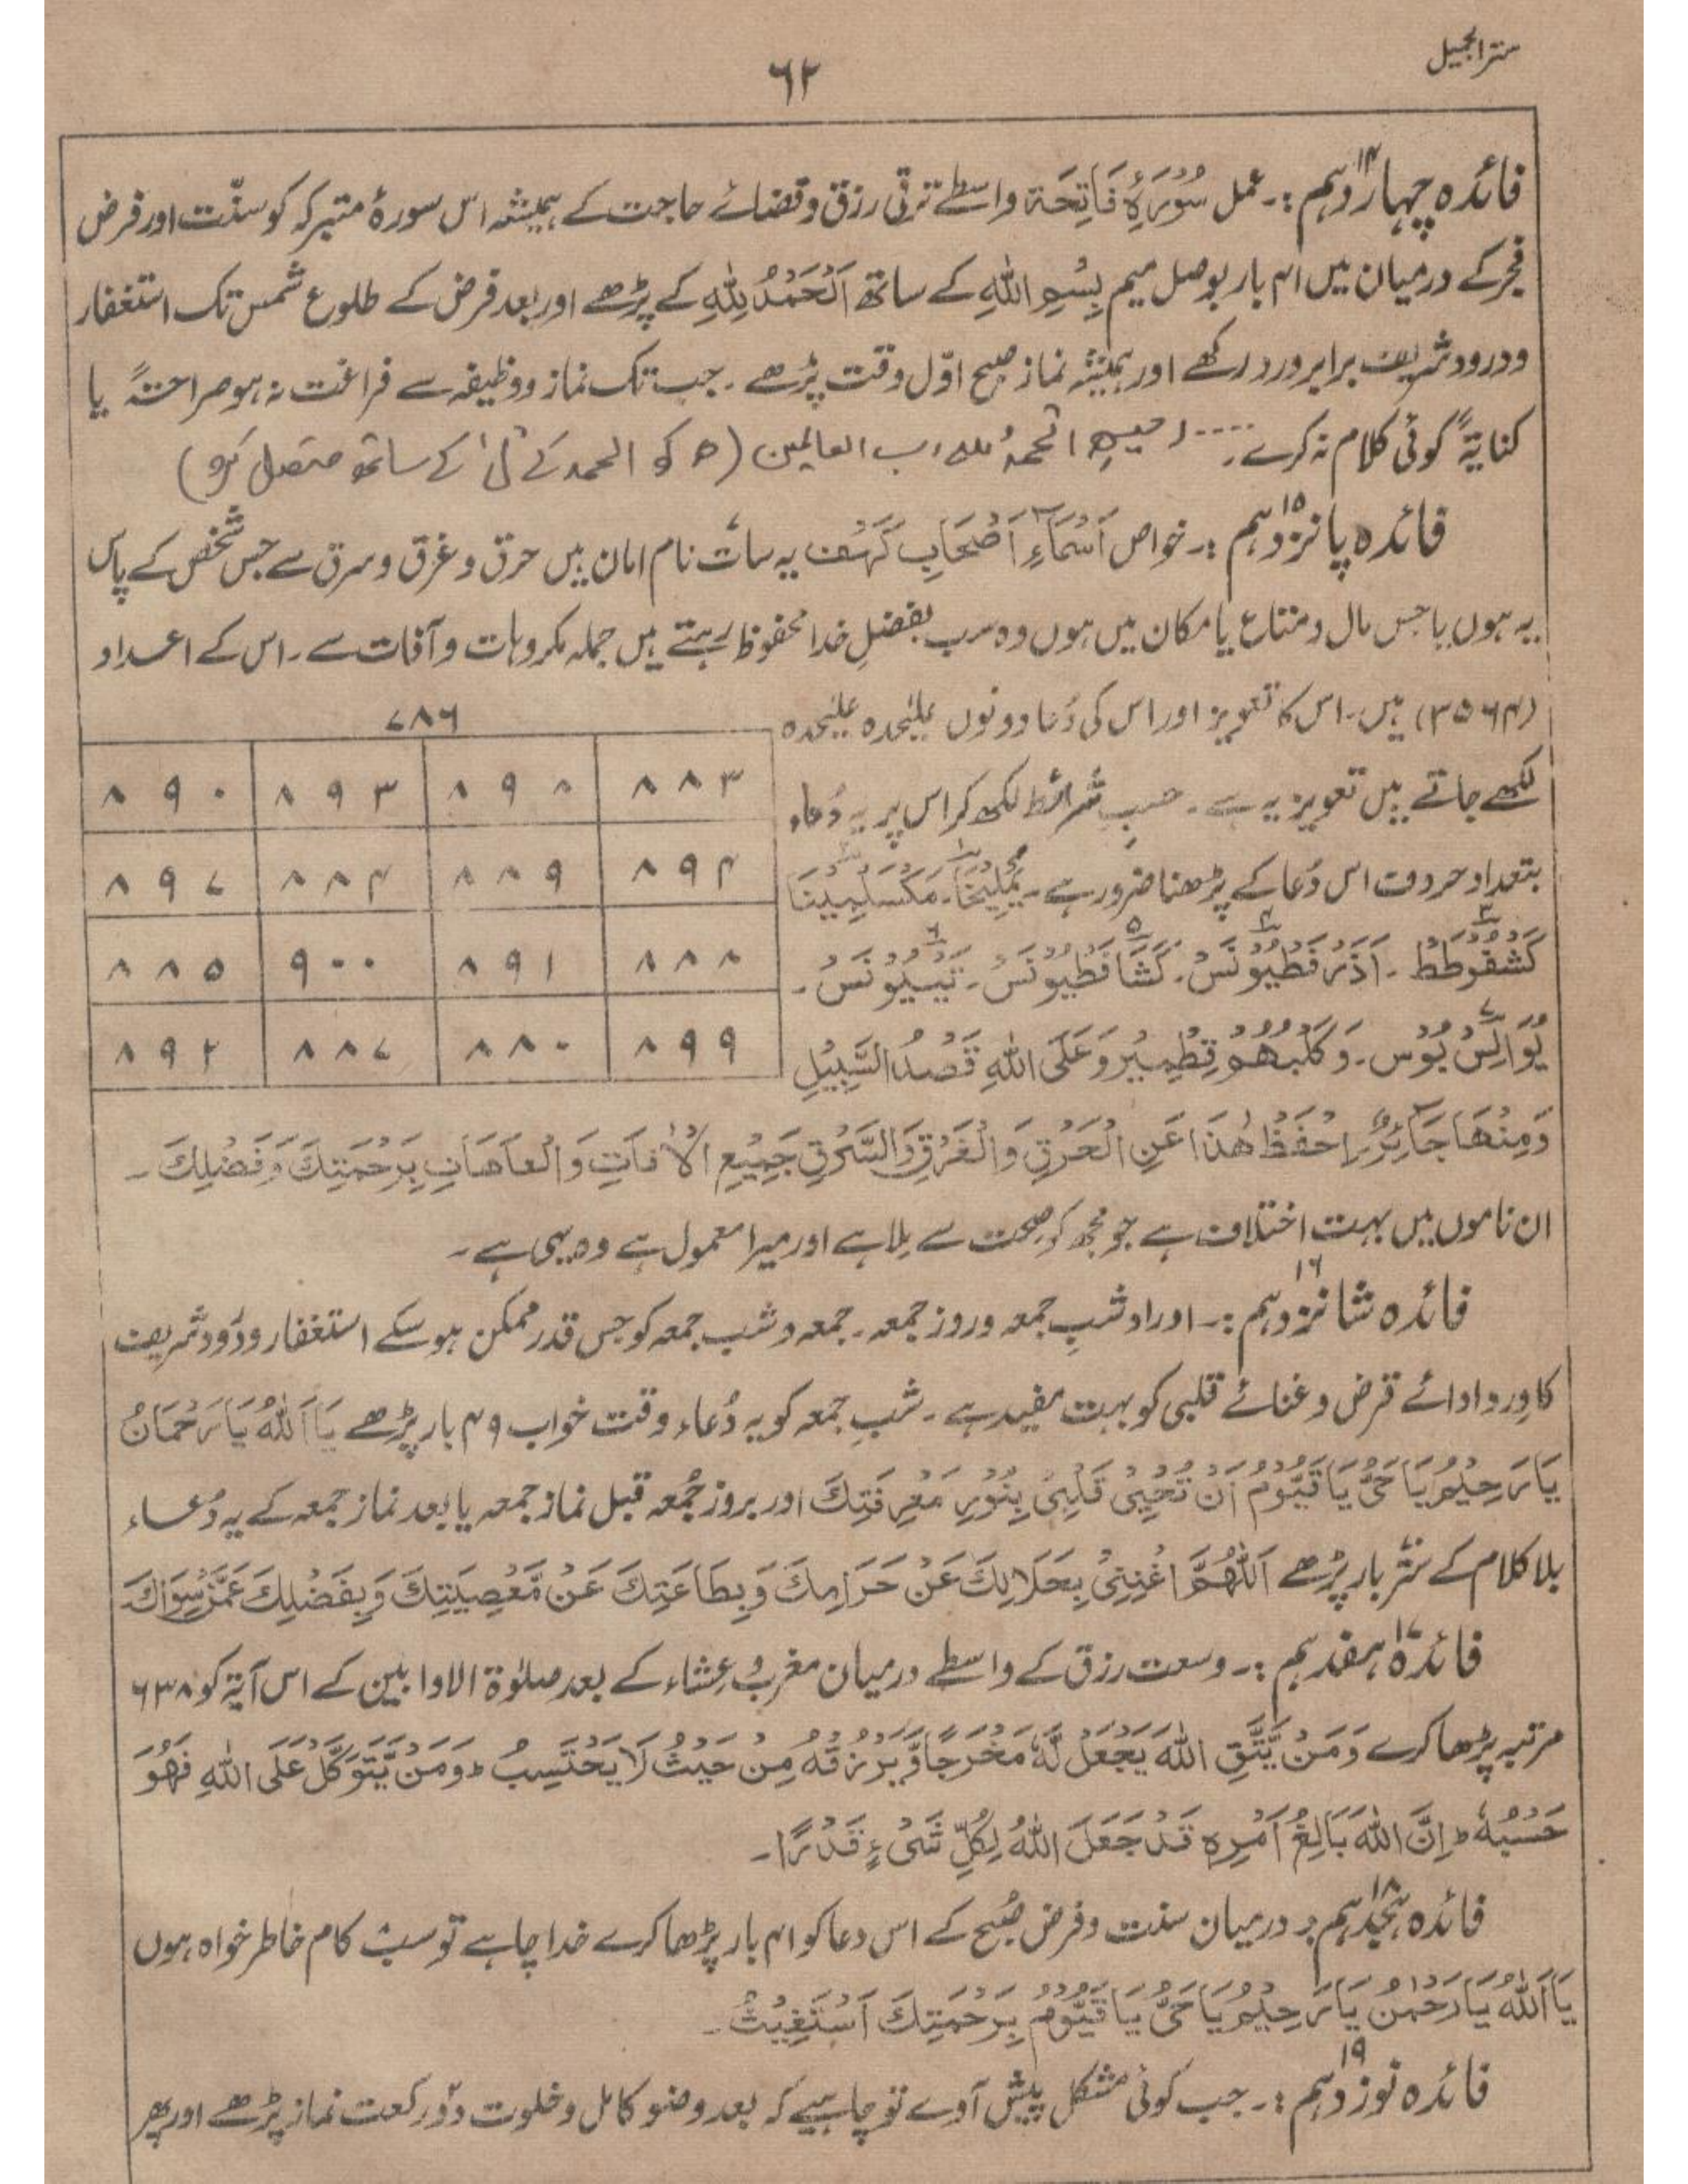 سترالجمیل
٦٢
فائدہ چہاردہم ١٤ :۔ عمل سُوْرَۂ فَاتِحَۃ واسطے ترقی رزق وقضائے حاجت کے ہمیشہ اس سورۂ متبرکہ کو سنّت اور فرض
فجر کے درمیان میں ۴۱ بار بوصل میم بِسْمِ اللهِ کے ساتھ اَلْحَمْدُ لِلّٰهِ کے پڑھے اور بعد فرض کے طلوع شمس تک استغفار
ودرود شریف برابر ورد رکھے اور ہمیشہ نماز صبح اوّل وقت پڑھے ۔ جب تک نماز ووظیفہ سے فراغت نہ ہو صراحتہً یا
کنایۃً کوئی کلام نہ کرے ۔ .... رحیمِ الحمدُ للہ رب العالمین (م کو الحمد کے لْ کے ساتھ متصل کرو)
فائدہ پانزدہم ١٥ :۔ خواص اَسْمَآءِ اَصْحَابِ کَہْف یہ سات نام امان ہیں حرق و غرق و سرق سے جس شخص کے پاس
یہ ہوں یا جس مال و متاع یا مکان میں ہوں وہ سب بفضلِ خدا محفوظ رہتے ہیں جملہ مکروہات و آفات سے ۔ اس کے اعداد
(۳۵۶۴) ہیں ۔ اس کا تعویذ اور اس کی دُعا دونوں علیٰحدہ علیٰحدہ
لکھے جاتے ہیں تعویذ یہ ہے ۔ حسبِ شرائط لکھ کر اس پر یہ دُعاء
بتعداد حروف اس دُعا کے پڑھنا ضرور ہے ۔ یَمْلِیْخَا ۔ مَکْسَلْمِیْنَا
کَشْفُوْطَطْ ۔ اَذَرْفَطْیُوْنَسْ ۔ کَشَافَطْیُوْنَسْ ۔ تَبْیُوْنَسْ ۔
یُوَانِسْ بُوْس ۔ وَکَلْبُهُمْ قِطْمِیْرُ وَعَلَی اللهِ قَصْدُ السَّبِیْلِ
٧٨٦
٨٨٣ ٨٩٨ ٨٩٣ ٨٩٠
٨٩۴ ٨٨٩ ٨٨۴ ٨٩٧
٨٨٨ ٨٩١ ٩٠٠ ٨٨٥
٨٩٩ ٨٨٠ ٨٨٧ ٨٩٢
وَمِنْهَا جَآئِرٌ اِحْفَظْ هٰذَا عَنِ الْحَرْقِ وَالْغَرْقِ وَالسَّرْقِ جَمِیْعِ الْاٰفَاتِ وَالْعَاهَاتِ بِرَحْمَتِكَ وَفَضْلِكَ ۔
ان ناموں میں بہت اختلاف ہے جو مجھ کو صحت سے ملا ہے اور میرا معمول ہے وہ یہی ہے ۔
فائدہ شانزدہم ١٦ :۔ اوراد شبِ جمعہ وروز جمعہ ۔ جمعہ و شب جمعہ کو جس قدر ممکن ہو سکے استغفار ودُرود شریف
کا وِرد ادائے قرض و غنائے قلبی کو بہت مفید ہے ۔ شبِ جمعہ کو یہ دُعاء وقت خواب ۴۹ بار پڑھے یَا اَللهُ یَا رَحْمَانُ
یَا رَحِیْمُ یَا حَیُّ یَا قَیُّوْمُ اَنْ تُحْیِیَ قَلْبِیْ بِنُوْرِ مَعْرِفَتِكَ اور بروز جُمعہ قبل نماز جمعہ یا بعد نماز جمعہ کے یہ دُعاء
بلا کلام کے ستّر بار پڑھے اَللّٰهُمَّ اغْنِنِیْ بِحَلَالِكَ عَنْ حَرَامِكَ وَبِطَاعَتِكَ عَنْ مَّعْصِیَتِكَ وَبِفَضْلِكَ عَمَّنْ سِوَاكَ
فائدہ ہفدہم ١٧ :۔ وسعت رزق کے واسطے درمیان مغرب و عشاء کے بعد صلوٰۃ الاوابین کے اس آیۃ کو ٦٣٨
مرتبہ پڑھا کرے وَمَنْ یَّتَّقِ اللهَ یَجْعَلْ لَّهٗ مَخْرَجًا وَّیَرْزُقْهُ مِنْ حَیْثُ لَا یَحْتَسِبُ ط وَمَنْ یَّتَوَكَّلْ عَلَی اللهِ فَهُوَ
حَسْبُهٗ ط اِنَّ اللهَ بَالِغُ اَمْرِهٖ قَدْ جَعَلَ اللهُ لِكُلِّ شَیْءٍ قَدْرًا ۔
فائدہ ہیجدہم ١٨ :۔ درمیان سنت و فرض صُبح کے اس دعا کو ۴۱ بار پڑھا کرے خدا چاہے تو سب کام خاطر خواہ ہوں
یَا اَللهُ یَا رَحْمٰنُ یَا رَحِیْمُ یَا حَیُّ یَا قَیُّوْمُ بِرَحْمَتِكَ اَسْتَغِیْثُ ۔
فائدہ نوزدہم ١٩ :۔ جب کوئی مشکل پیش آوے تو چاہیے کہ بعد وضو کامل و خلوت دو رکعت نماز پڑھے اور پھر